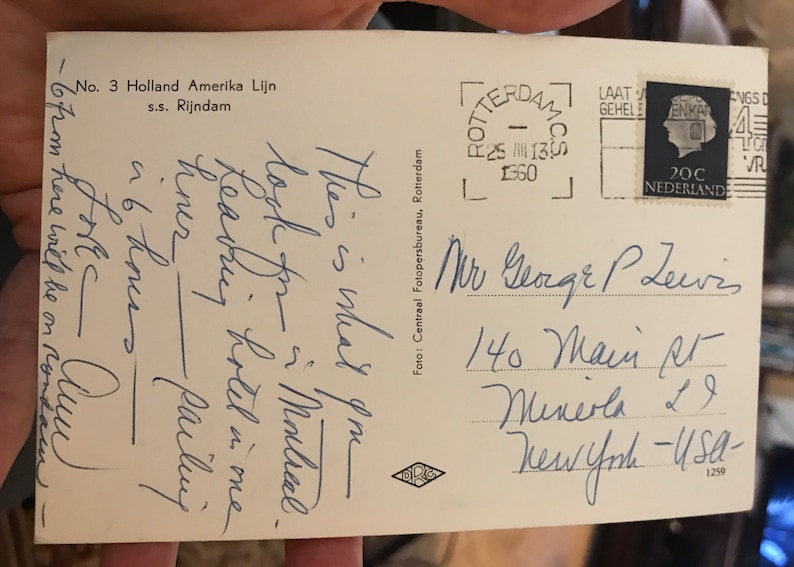 No. 3 Holland Amerika Lijn
s.s. Rijndam
This is what you
look for in Montreal.
Leaving hotel in one
hour — sailing
in 6 hours —
Love
Ann
Foto: Centraal Fotopersbureau, Rotterdam
ROTTERDAM C.S
25 III 13
1960
LAAT
GEHEL
4
20 C
NEDERLAND
Mr George P Lewis
140 Main St
Mineola L I
New York - USA -
1259